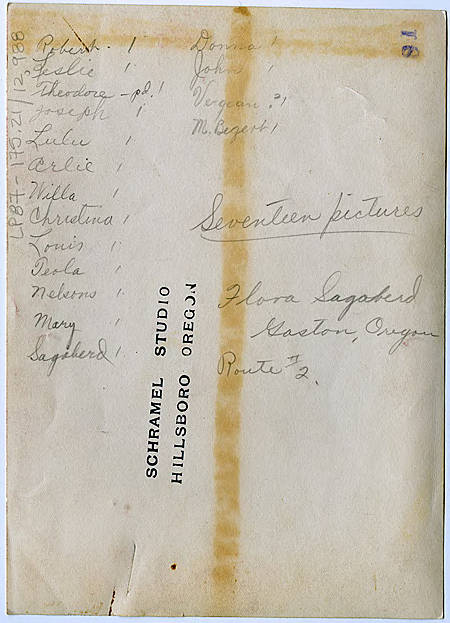 Robert - 1
Leslie 1
Theodore - pd. 1
Joseph 1
Lulu 1
Arlie 1
Willa 1
Christina 1
Louis 1
Teola 1
Nelsons 1
Mary 1
Sagaberd 1
Donna 1
John 1
Vergean ? 1
M. Begert 1
Seventeen pictures
Flora Sagaberd
Gaston, Oregon
Route #2.
SCHRAMEL STUDIO
HILLSBORO OREGON
LP87-175.21/12,988